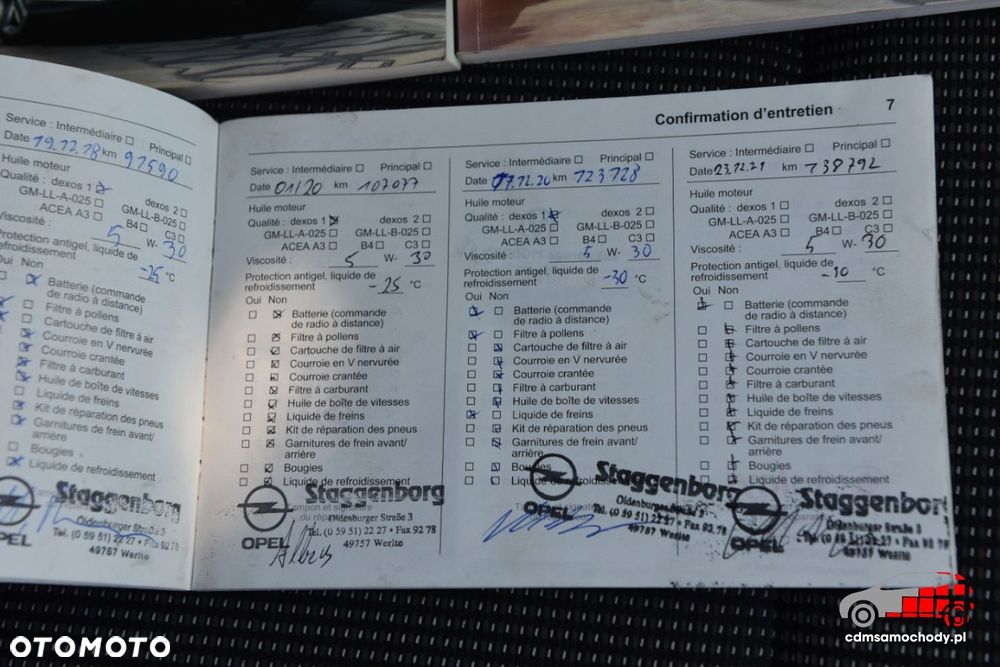 Service : Intermédiaire ☐ Principal ☐
Date 19.12.18 km 91590
Huile moteur
Qualité : dexos 1 ☒ dexos 2 ☐
GM-LL-A-025 ☐ GM-LL-B-025 ☐
ACEA A3 ☐ B4 ☐ C3 ☐
Viscosité : 5 W- 30
Protection antigel, liquide de
refroidissement -25 °C
Oui Non
Batterie (commande
de radio à distance)
Filtre à pollens
Cartouche de filtre à air
Courroie en V nervurée
Courroie crantée
Filtre à carburant
Huile de boîte de vitesses
Liquide de freins
Kit de réparation des pneus
Garnitures de frein avant/
arrière
Bougies
Liquide de refroidissement
Staggenborg
Oldenburger Straße 3
Tel. (0 59 51) 22 27 • Fax 92 78
49757 Werlte
OPEL
Confirmation d'entretien 7
Service : Intermédiaire ☐ Principal ☐
Date 01/20 km 107077
Huile moteur
Qualité : dexos 1 ☒ dexos 2 ☐
GM-LL-A-025 ☐ GM-LL-B-025 ☐
ACEA A3 ☐ B4 ☐ C3 ☐
Viscosité : 5 W- 30
Protection antigel, liquide de
refroidissement -25 °C
Oui Non
Batterie (commande
de radio à distance)
Filtre à pollens
Cartouche de filtre à air
Courroie en V nervurée
Courroie crantée
Filtre à carburant
Huile de boîte de vitesses
Liquide de freins
Kit de réparation des pneus
Garnitures de frein avant/
arrière
Bougies
Liquide de refroidissement
Staggenborg
Oldenburger Straße 3
Tel. (0 59 51) 22 27 • Fax 92 78
49757 Werlte
OPEL
Service : Intermédiaire ☐ Principal ☐
Date 17.12.20 km 123128
Huile moteur
Qualité : dexos 1 ☒ dexos 2 ☐
GM-LL-A-025 ☐ GM-LL-B-025 ☐
ACEA A3 ☐ B4 ☐ C3 ☐
Viscosité : 5 W- 30
Protection antigel, liquide de
refroidissement -30 °C
Oui Non
Batterie (commande
de radio à distance)
Filtre à pollens
Cartouche de filtre à air
Courroie en V nervurée
Courroie crantée
Filtre à carburant
Huile de boîte de vitesses
Liquide de freins
Kit de réparation des pneus
Garnitures de frein avant/
arrière
Bougies
Liquide de refroidissement
Staggenborg
Oldenburger Straße 3
Tel. (0 59 51) 22 27 • Fax 92 78
49757 Werlte
OPEL
Service : Intermédiaire ☐ Principal ☐
Date 23.12.21 km 138792
Huile moteur
Qualité : dexos 1 ☐ dexos 2 ☐
GM-LL-A-025 ☐ GM-LL-B-025 ☐
ACEA A3 ☐ B4 ☐ C3 ☐
Viscosité : 5 W- 30
Protection antigel, liquide de
refroidissement -10 °C
Oui Non
Batterie (commande
de radio à distance)
Filtre à pollens
Cartouche de filtre à air
Courroie en V nervurée
Courroie crantée
Filtre à carburant
Huile de boîte de vitesses
Liquide de freins
Kit de réparation des pneus
Garnitures de frein avant/
arrière
Bougies
Liquide de refroidissement
Staggenborg
Oldenburger Straße 3
Tel. (0 59 51) 22 27 • Fax 92 78
49757 Werlte
OPEL
OTOMOTO
cdmsamochody.pl